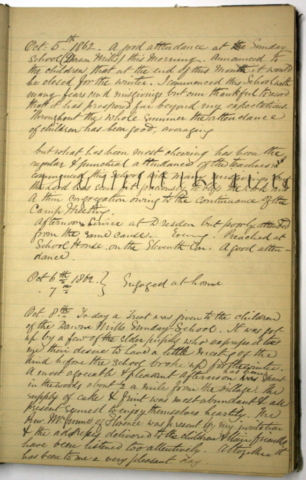 Oct. 5th 1862. A good attendance at the Sunday
School (Dawn Mills) this morning. Announced to
the children, that at the end of this month it would
be closed for the winter. I commenced this School with
many fears and misgivings but am thankful to record
that it has prospered far beyond my expectations
throughout the whole Summer the attendance
of children has been good, averaging
but what has been most cheering has been the
regular & punctual attendance of the Teachers
A thin congregation owing to the continuance of the
Camp Meeting.
Afternoon Service at Dresden but poorly attended
from the same cause. Evening. Preached at
School House on the Eleventh Con. A good atten-
dance.
Oct 6th 1862 } Engaged at home
" 7th
Oct 8th To day a Treat was given to the children
of the Dawn Mills Sunday School. It was got
up by a few of the elder pupils who expressed to
me their desire to have a little meeting of the
kind before the School broke up for the winter.
A most agreeable & pleasant afternoon was spent
in the woods about 1/2 a mile from the village. The
supply of cake & fruit was most abundant & all
present seemed to enjoy themselves heartily. The
Rev. of Florence was present by my invitation
& the addresses delivered to the children & their friends
have been listened to attentively. Altogether it
has been to me a very pleasant day.